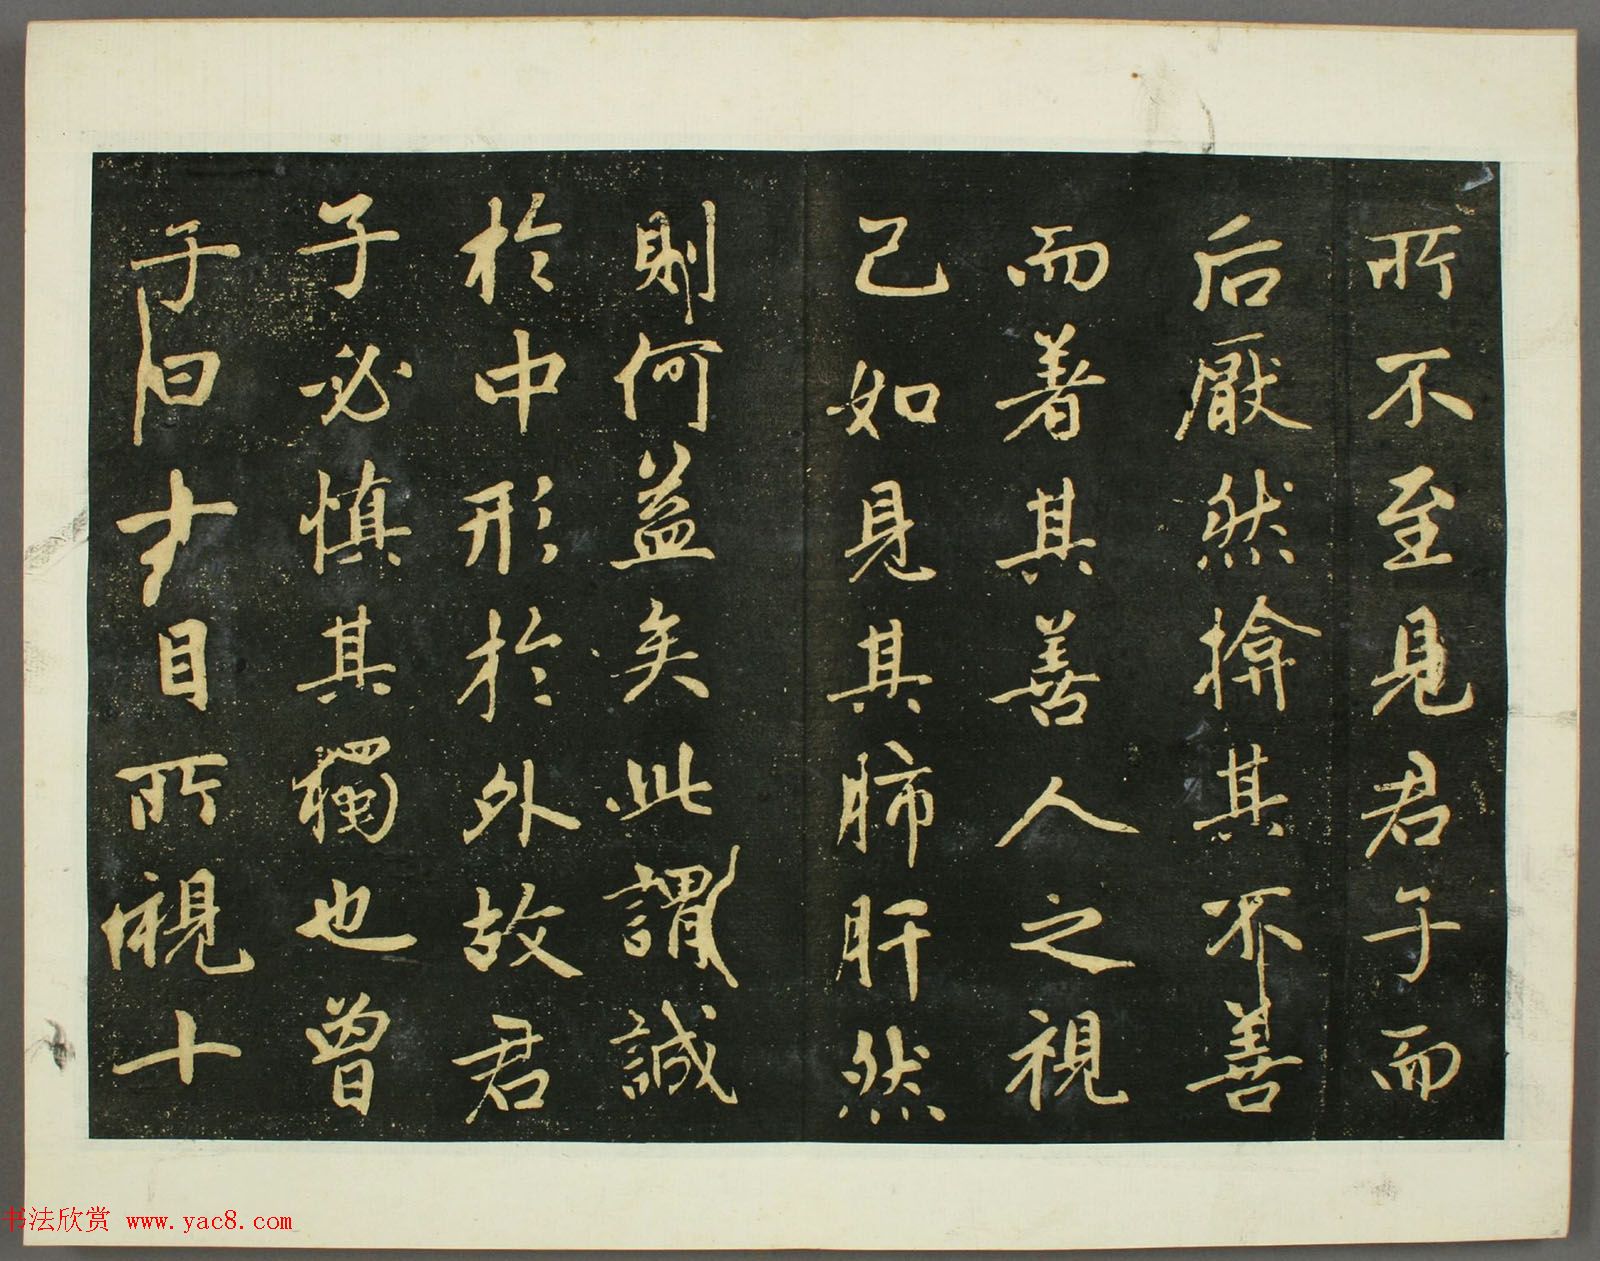 所不至見君子而
后厭然揜其不善
而著其善人之視
己如見其肺肝然
則何益矣此謂誠
於中形於外故君
子必慎其獨也曾
子曰十目所視十
书法欣赏 www.yac8.com